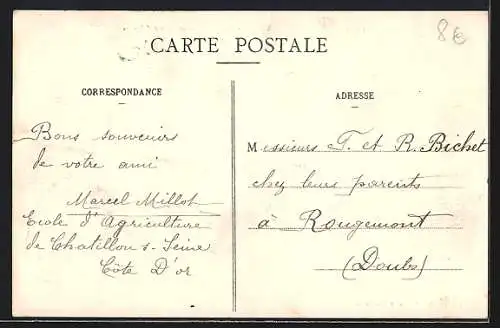 8€
CARTE POSTALE
CORRESPONDANCE
Bons souvenirs
de votre ami
Marcel Millot
Ecole d'Agriculture
de Chatillon s- Seine
Côte D'or
ADRESSE
Messieurs T. et R. Bichet
chez leurs parents
à Rougemont
(Doubs)